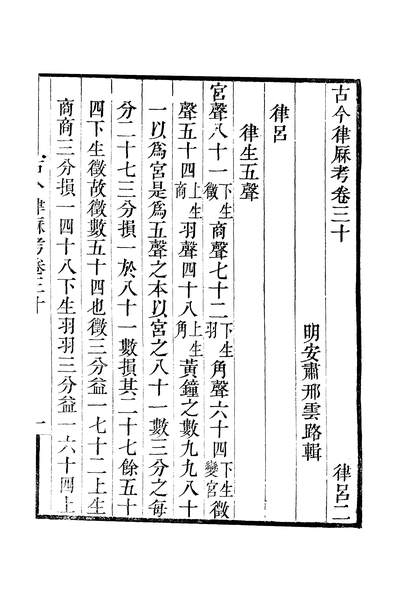 古今律厤考卷三十 律呂二
明安肅邢雲路輯
律呂
律生五聲
宮聲八十一下生徵商聲七十二下生羽角聲六十四下生變宮徵
聲五十四上生商羽聲四十八上生角黃鐘之數九九八十
一以爲宮是爲五聲之本以宮之八十一數三分之每
分二十七三分損一於八十一數損其二十七餘五十
四下生徵故徵數五十四也徵三分益一七十二上生
商商三分損一四十八下生羽羽三分益一六十四上
古今律厤考卷三十 一